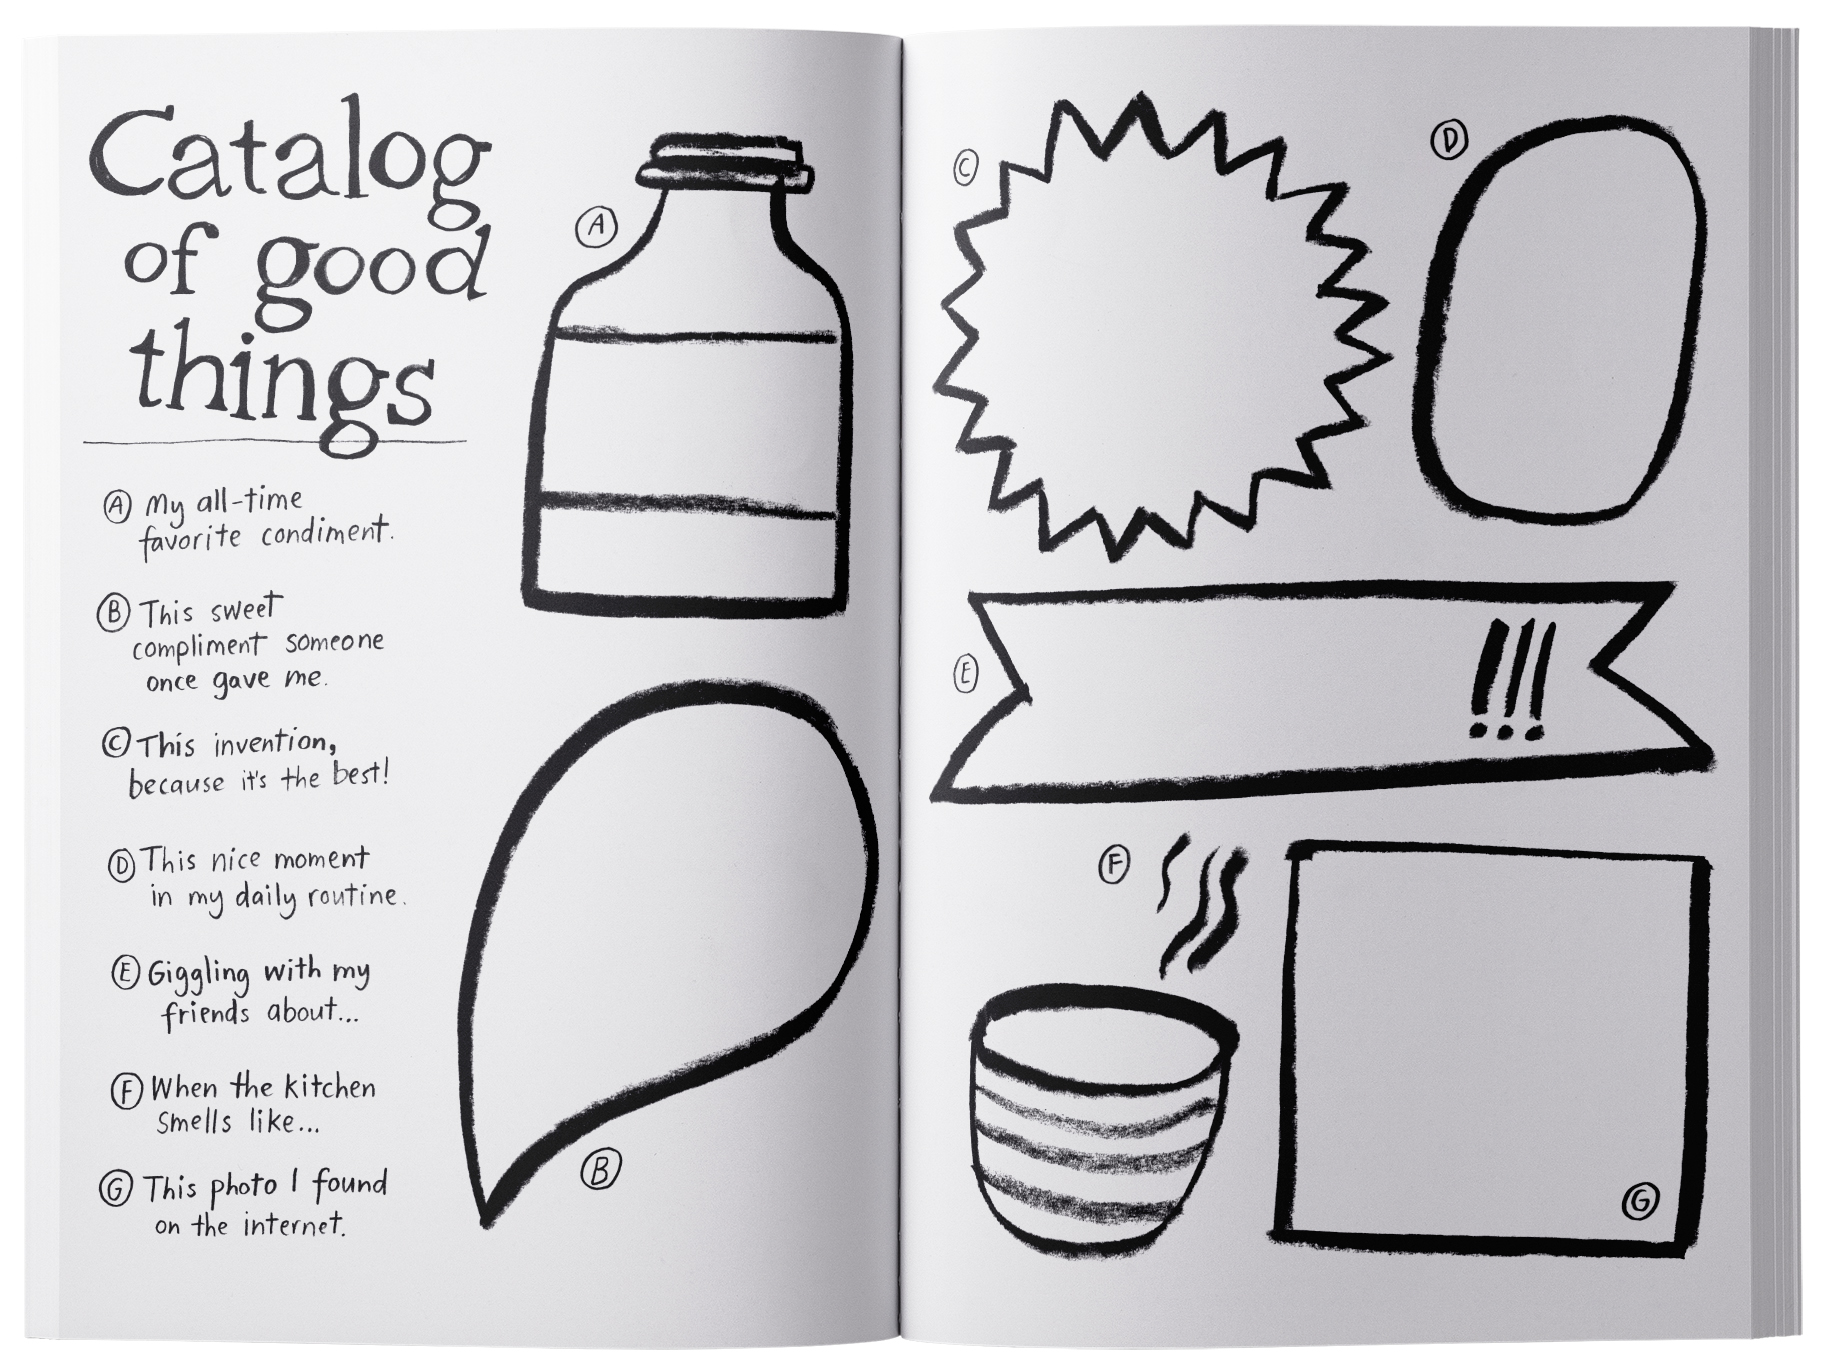 Catalog
of good
things
A My all-time
favorite condiment.
B This sweet
compliment someone
once gave me.
C This invention,
because it's the best!
D This nice moment
in my daily routine.
E Giggling with my
friends about...
F When the kitchen
smells like...
G This photo I found
on the internet.
A
B
C
D
E
!!!
F
G